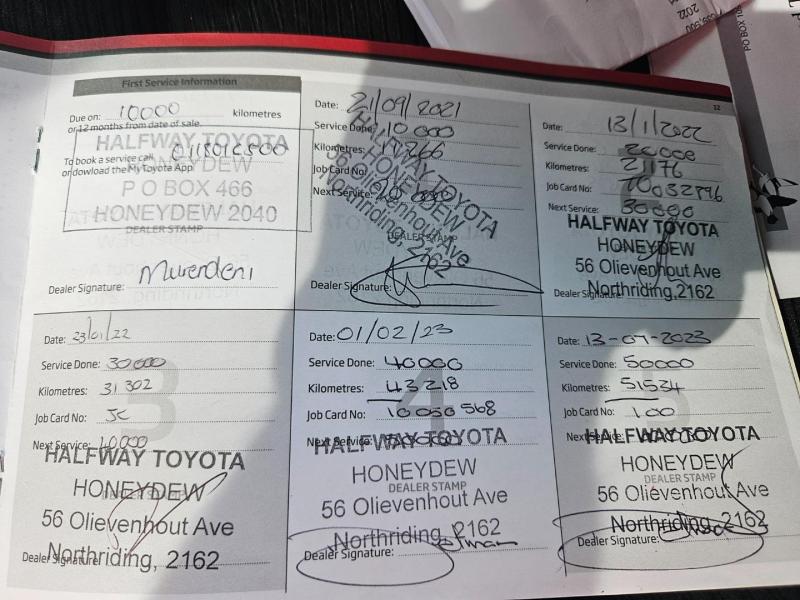 First Service Information
Due on: 10000 kilometres
or 12 months from date of sale.
To book a service call
or dowload the MyToyota App
HALFWAY TOYOTA
HONEYDEW
P O BOX 466
HONEYDEW 2040
DEALER STAMP
Dealer Signature: Murendeni
Date: 21/09/2021
Service Done: 10 000
Kilometres: 17 266
Job Card No:
Next Service:
HALFWAY TOYOTA
HONEYDEW
56 Olievenhout Ave
Northriding, 2162
DEALER STAMP
Dealer Signature:
12
Date: 13/1/2022
Service Done: 20000
Kilometres: 21176
Job Card No:
Next Service: 30000
HALFWAY TOYOTA
HONEYDEW
56 Olievenhout Ave
Northriding, 2162
Dealer Signature:
3
Date: 23/01/22
Service Done: 30000
Kilometres: 31 302
Job Card No: JC
Next Service: 40000
HALFWAY TOYOTA
HONEYDEW
56 Olievenhout Ave
Northriding, 2162
Dealer Signature:
4
Date: 01/02/23
Service Done: 40000
Kilometres: 43218
Job Card No: 10050568
Next Service:
HALFWAY TOYOTA
HONEYDEW
DEALER STAMP
56 Olievenhout Ave
Northriding, 2162
Dealer Signature:
Date: 13-07-2023
Service Done: 50000
Kilometres: 51534
Job Card No: 100
Next Service:
HALFWAY TOYOTA
HONEYDEW
DEALER STAMP
56 Olievenhout Ave
Northriding, 2162
Dealer Signature:
2022
PO BOX